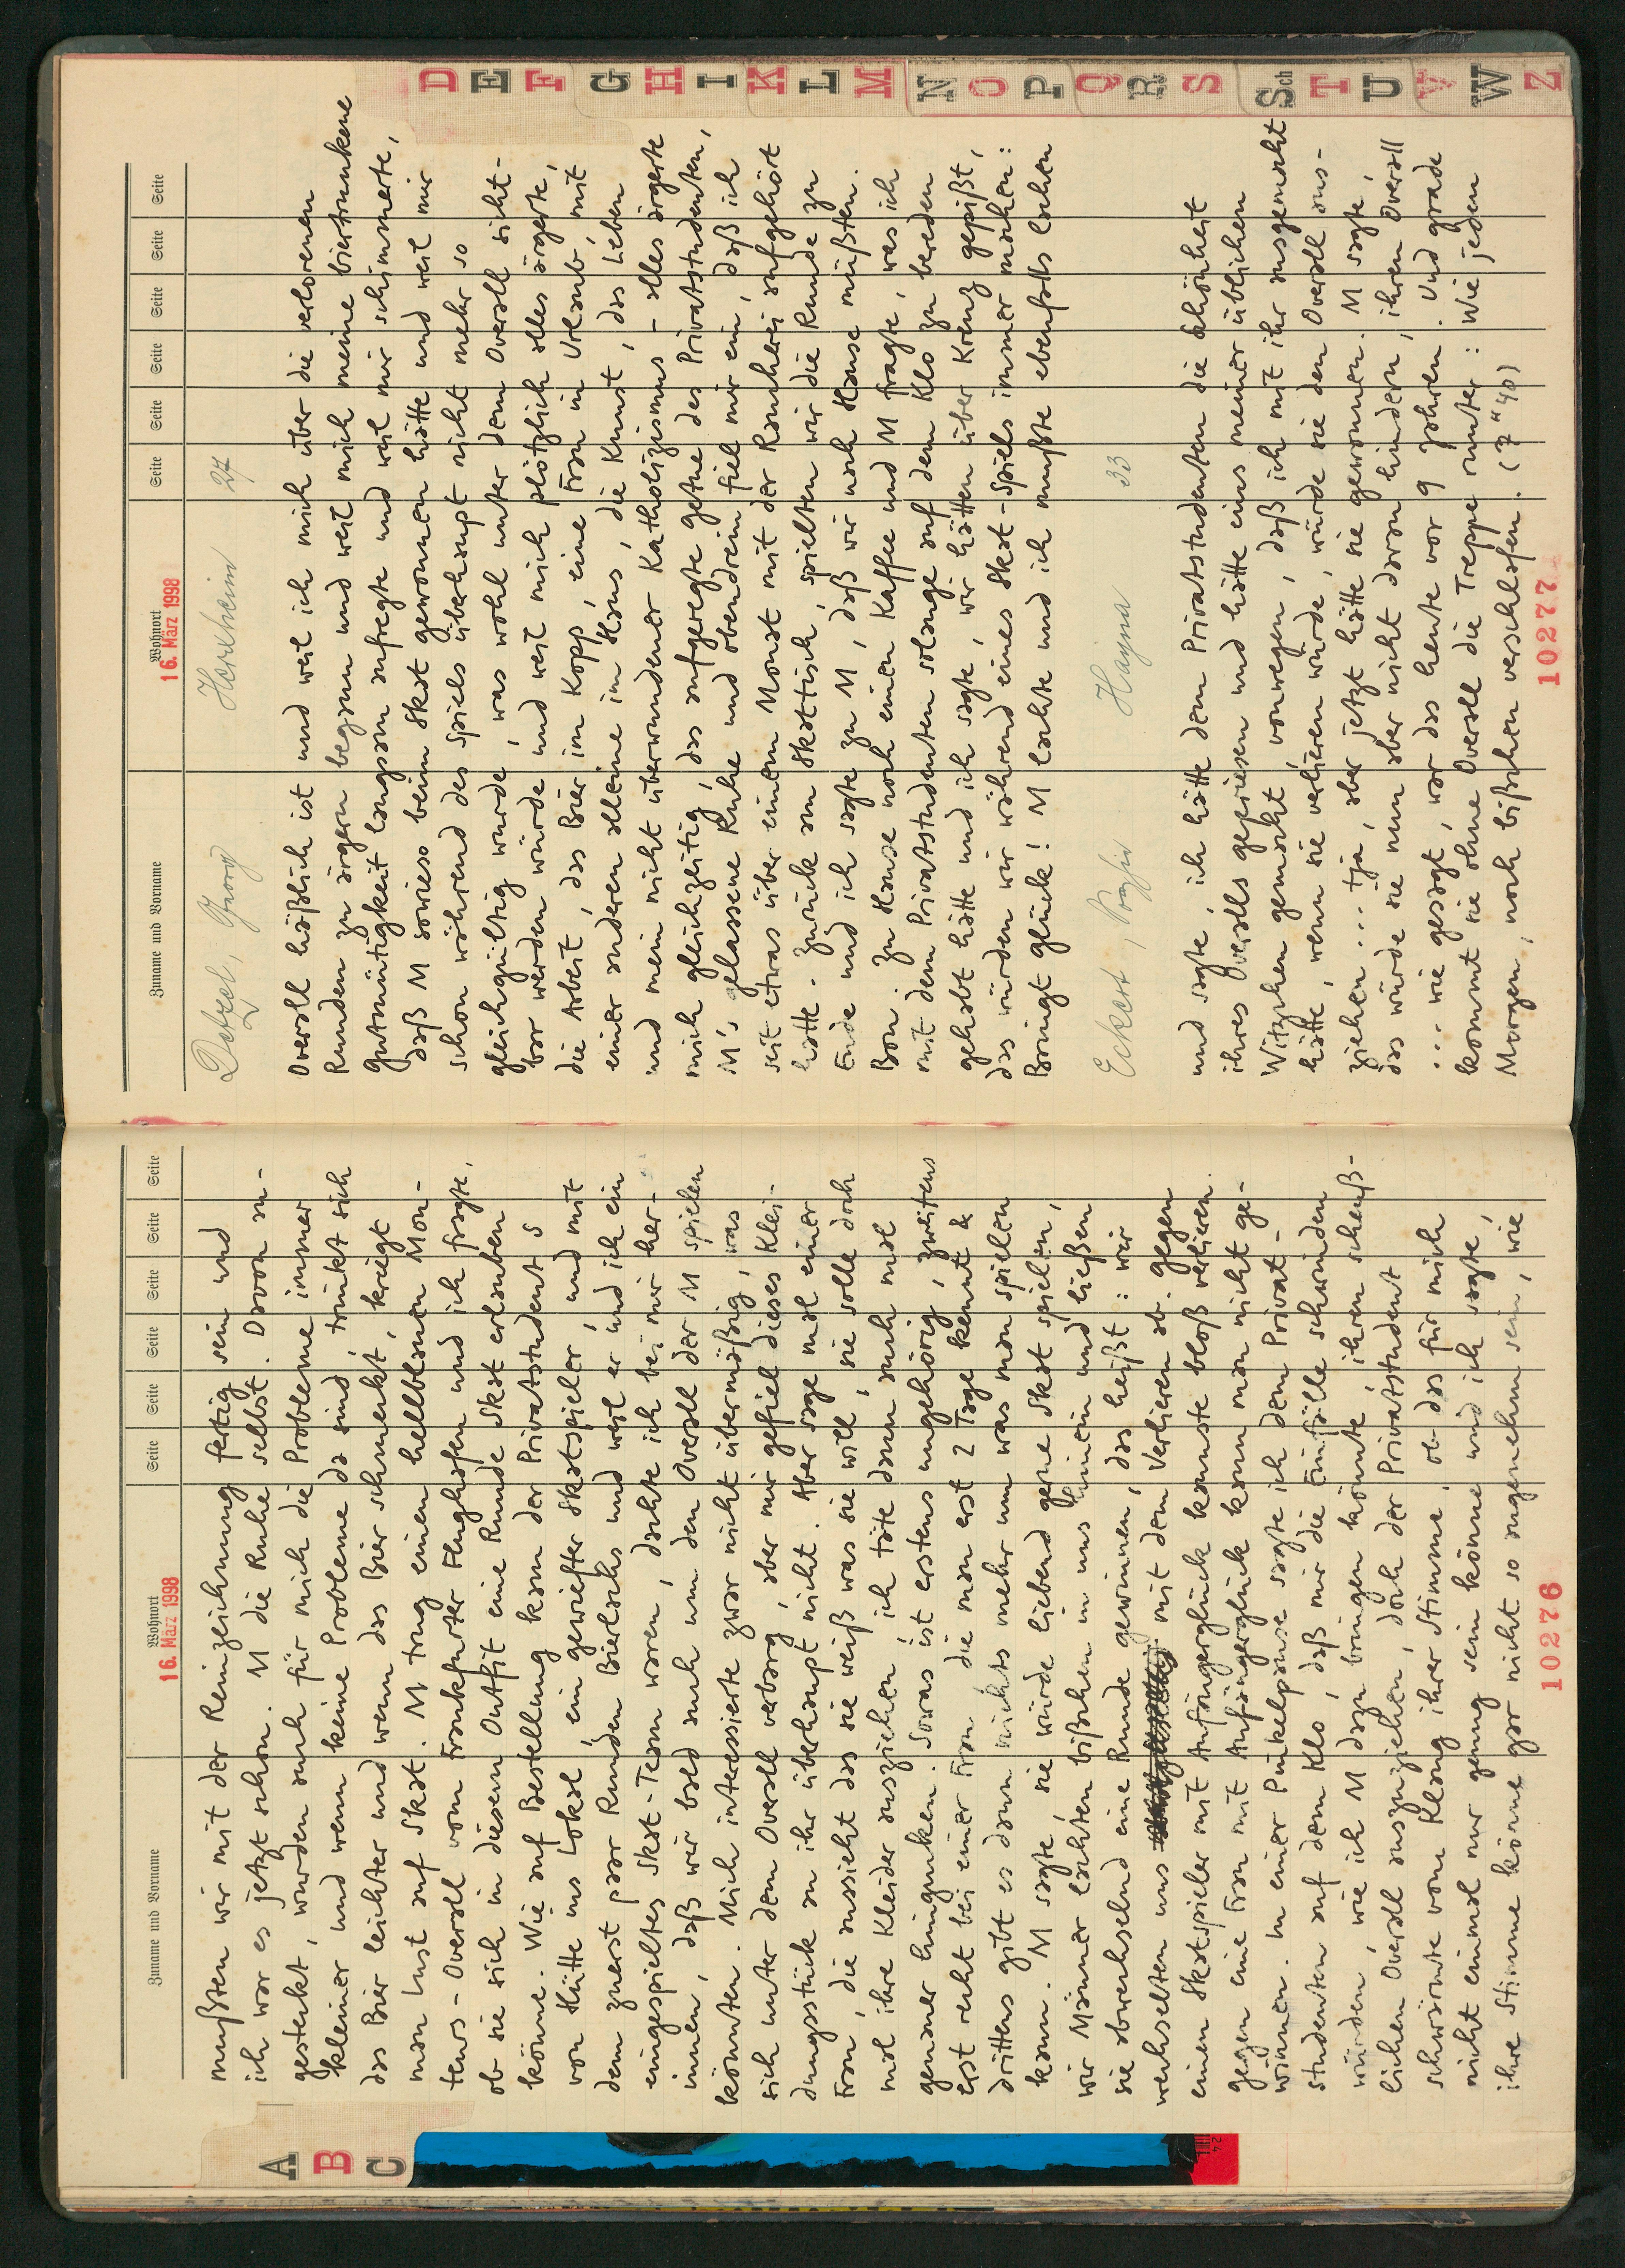 A
B
C
Zuname und Vorname Wohnort Seite Seite Seite Seite Seite Seite
16. März 1998
mußten wir mit der Reinzeichnung fertig sein und
ich war es jetzt schon. M die Ruhe selbst. Davon an-
gesteckt, wurden auch für mich die Probleme immer
kleiner und wenn keine Probleme da sind, trinkt sich
das Bier leichter und wenn das Bier schmeckt, kriegt
man Lust auf Skat. M trug einen hellblauen Mon-
teurs-Overall vom Frankfurter Flughafen und ich fragte,
ob sie sich in diesem Outfit eine Runde Skat erlauben
könne. Wie auf Bestellung kam der Privatstudent S
von Hütte ins Lokal, ein gewiefter Skatspieler, und mit
dem zuerst paar Runden Bierlachs und weil er und ich ein
eingespieltes Skat-Team waren, dachte ich bei mir her-
innen, daß wir bald auch um den Overall der M spielen
könnten. Mich interessierte zwar nicht übermäßig, was
sich unter dem Overall verbarg, aber mir gefiel dieses Klei-
dungsstück an ihr überhaupt nicht. Aber sage mal einer
Frau, die aussieht das sie weiß was sie will, sie solle doch
mal ihre Kleider ausziehen, ich täte dann auch mal
genauer hingucken. Sowas ist erstens ungehörig, zweitens
erst recht bei einer Frau die man erst 2 Tage kennt &
drittens gibt es dann nichts mehr um was man spielen
kann. M sagte, sie würde liebend gerne Skat spielen,
wir Männer lachten bißchen in uns hinein und ließen
sie abwechselnd eine Runde gewinnen, das heißt: wir
wechselten uns mit dem Verlieren ab. Gegen
einen Skatspieler mit Anfängerglück konnste bloß verlieren.
gegen eine Frau mit Anfängerglück kann man nicht ge-
winnen. In einer Pinkelpause sagte ich dem Privat-
studenten auf dem Klo, daß mir die Einfälle schwinden
würden, wie ich M dazu bringen könnte, ihren scheuß-
lichen Overall auszuziehen, doch der Privatstudent
schwärmte vom Klang ihrer Stimme, ob das für mich
nicht einmal nur genug sein könne und ich sagte,
ihre Stimme könne gar nicht so angenehm sein, wie
10276
Zuname und Vorname Wohnort Seite Seite Seite Seite Seite Seite
16. März 1998
Detzel, Georg Herxheim 27
Overall häßlich ist und weil ich mich über die verlorenen
Runden zu ärgern begann und weil mich meine biertrunkene
Gutmütigkeit langsam aufregte und weil mir schimmerte,
daß M sowieso beim Skat gewonnen hätte und weil mir
schon während des Spiels überhaupt nicht mehr so
gleichgültig wurde, was wohl unter dem Overall sicht-
bar werden würde und weil mich plötzlich alles ärgerte,
die Arbeit, das Bier im Kopp, eine Frau in Urlaub, mit
einer anderen alleine im Haus, die Kunst, das Leben
und mein nicht überwundener Katholizismus - alles ärgerte
mich gleichzeitig, das aufgeregte Getue des Privatstudenten,
M's gelassene Ruhe und obendrein fiel mir ein, daß ich
seit etwas über einem Monat mit der Raucherei aufgehört
hatte. Zurück am Skattisch, spielten wir die Runde zu
Ende und ich sagte zu M, daß wir noch Hause müßten.
Bon. Zu Hause noch einen Kaffee und M fragte, was ich
mit dem Privatstudenten solange auf dem Klo zu bereden
gehabt hätte und ich sagte, wir hätten über Kreuz gepißt,
das würden wir während eines Skat-Spiels immer machen:
Bringt Glück! M lachte und ich mußte ebenfalls lachen
Eckert, Hayna 33
und sagte, ich hätte dem Privatstudenten die Schönheit
ihres Overalls gepriesen und hätte eins meiner üblichen
Witzchen gemacht, vonwegen, daß ich mit ihr ausgemacht
hätte, wenn sie verlieren würde, würde sie den Overall aus-
ziehen ... tja, aber jetzt hätte sie gewonnen. M sagte,
das würde sie nun aber nicht daran hindern, ihren Overall
... wie gesagt, war das heute vor 9 Jahren. Und grade
kommt sie ohne Overall die Treppe runter: Wie jeden
Morgen, noch bißchen verschlafen. (7"40)
10277
D
E
F
G
H
I
K
L
M
N
O
P
Q
R
S
Sch
T
U
V
W
Z